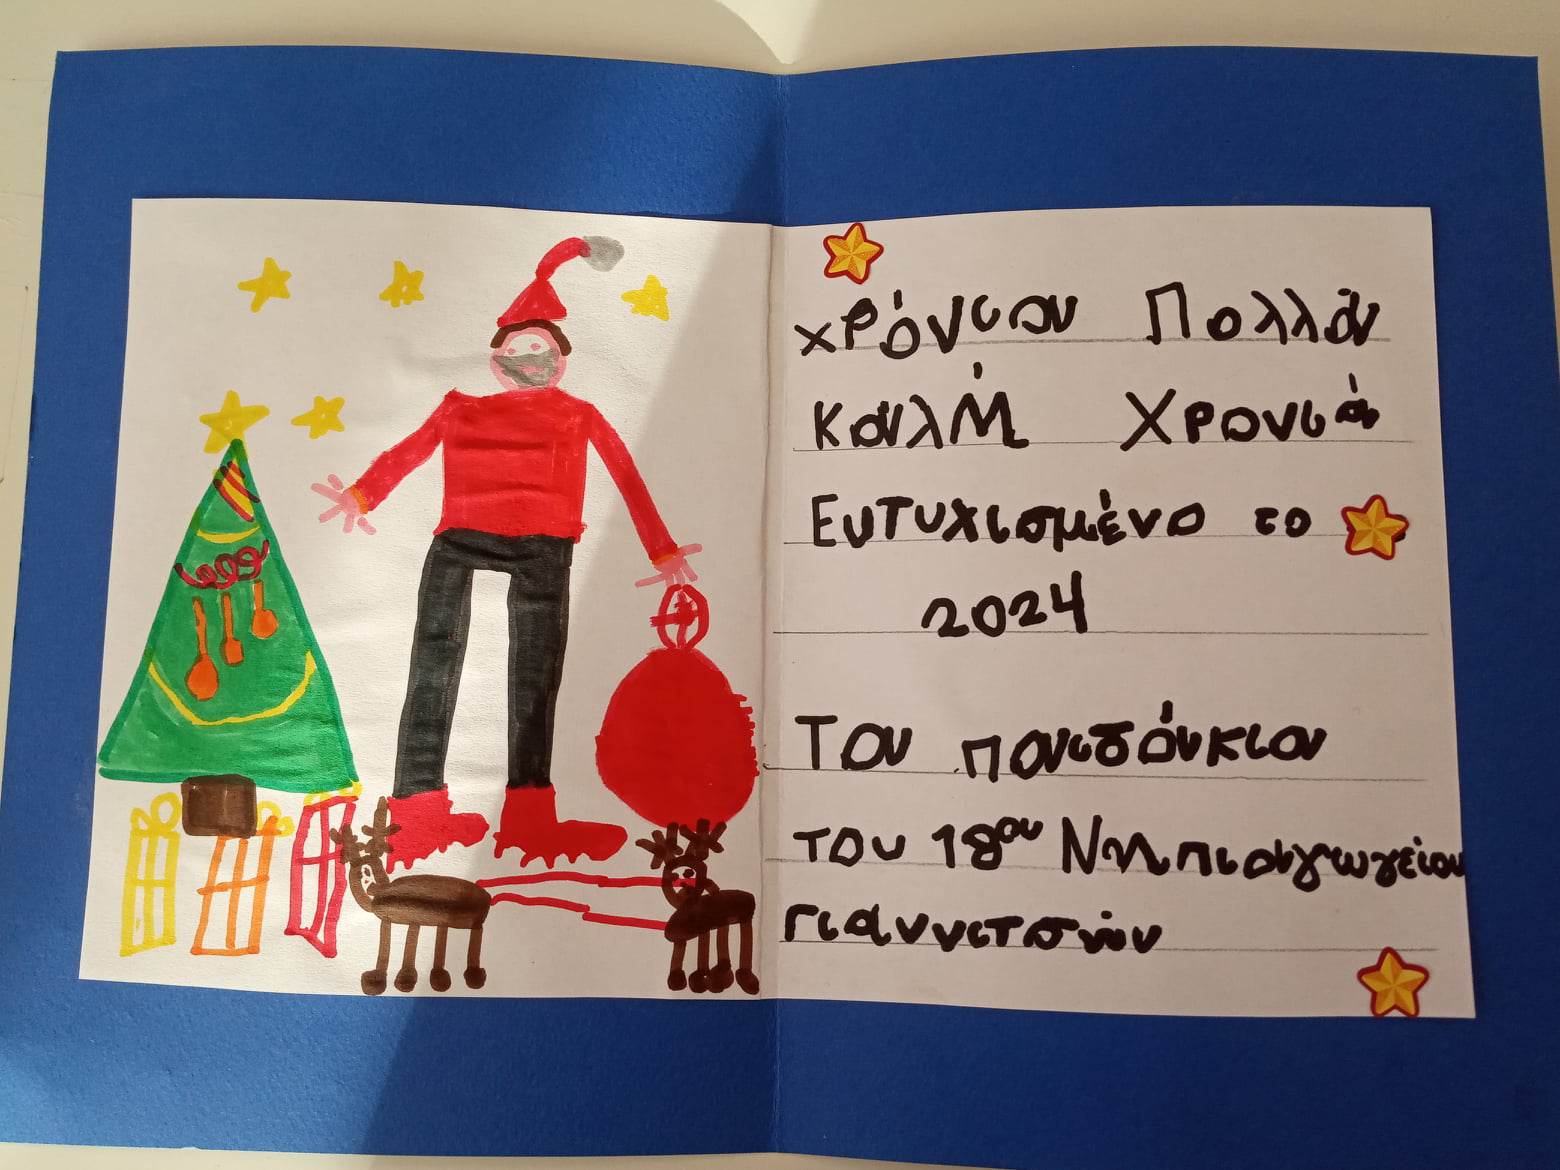 χρόνια Πολλά
Καλή Χρονιά
Ευτυχισμένο το
2024
Τα παιδάκια
του 18ου Νηπιαγωγείου
Γιαννιτσών